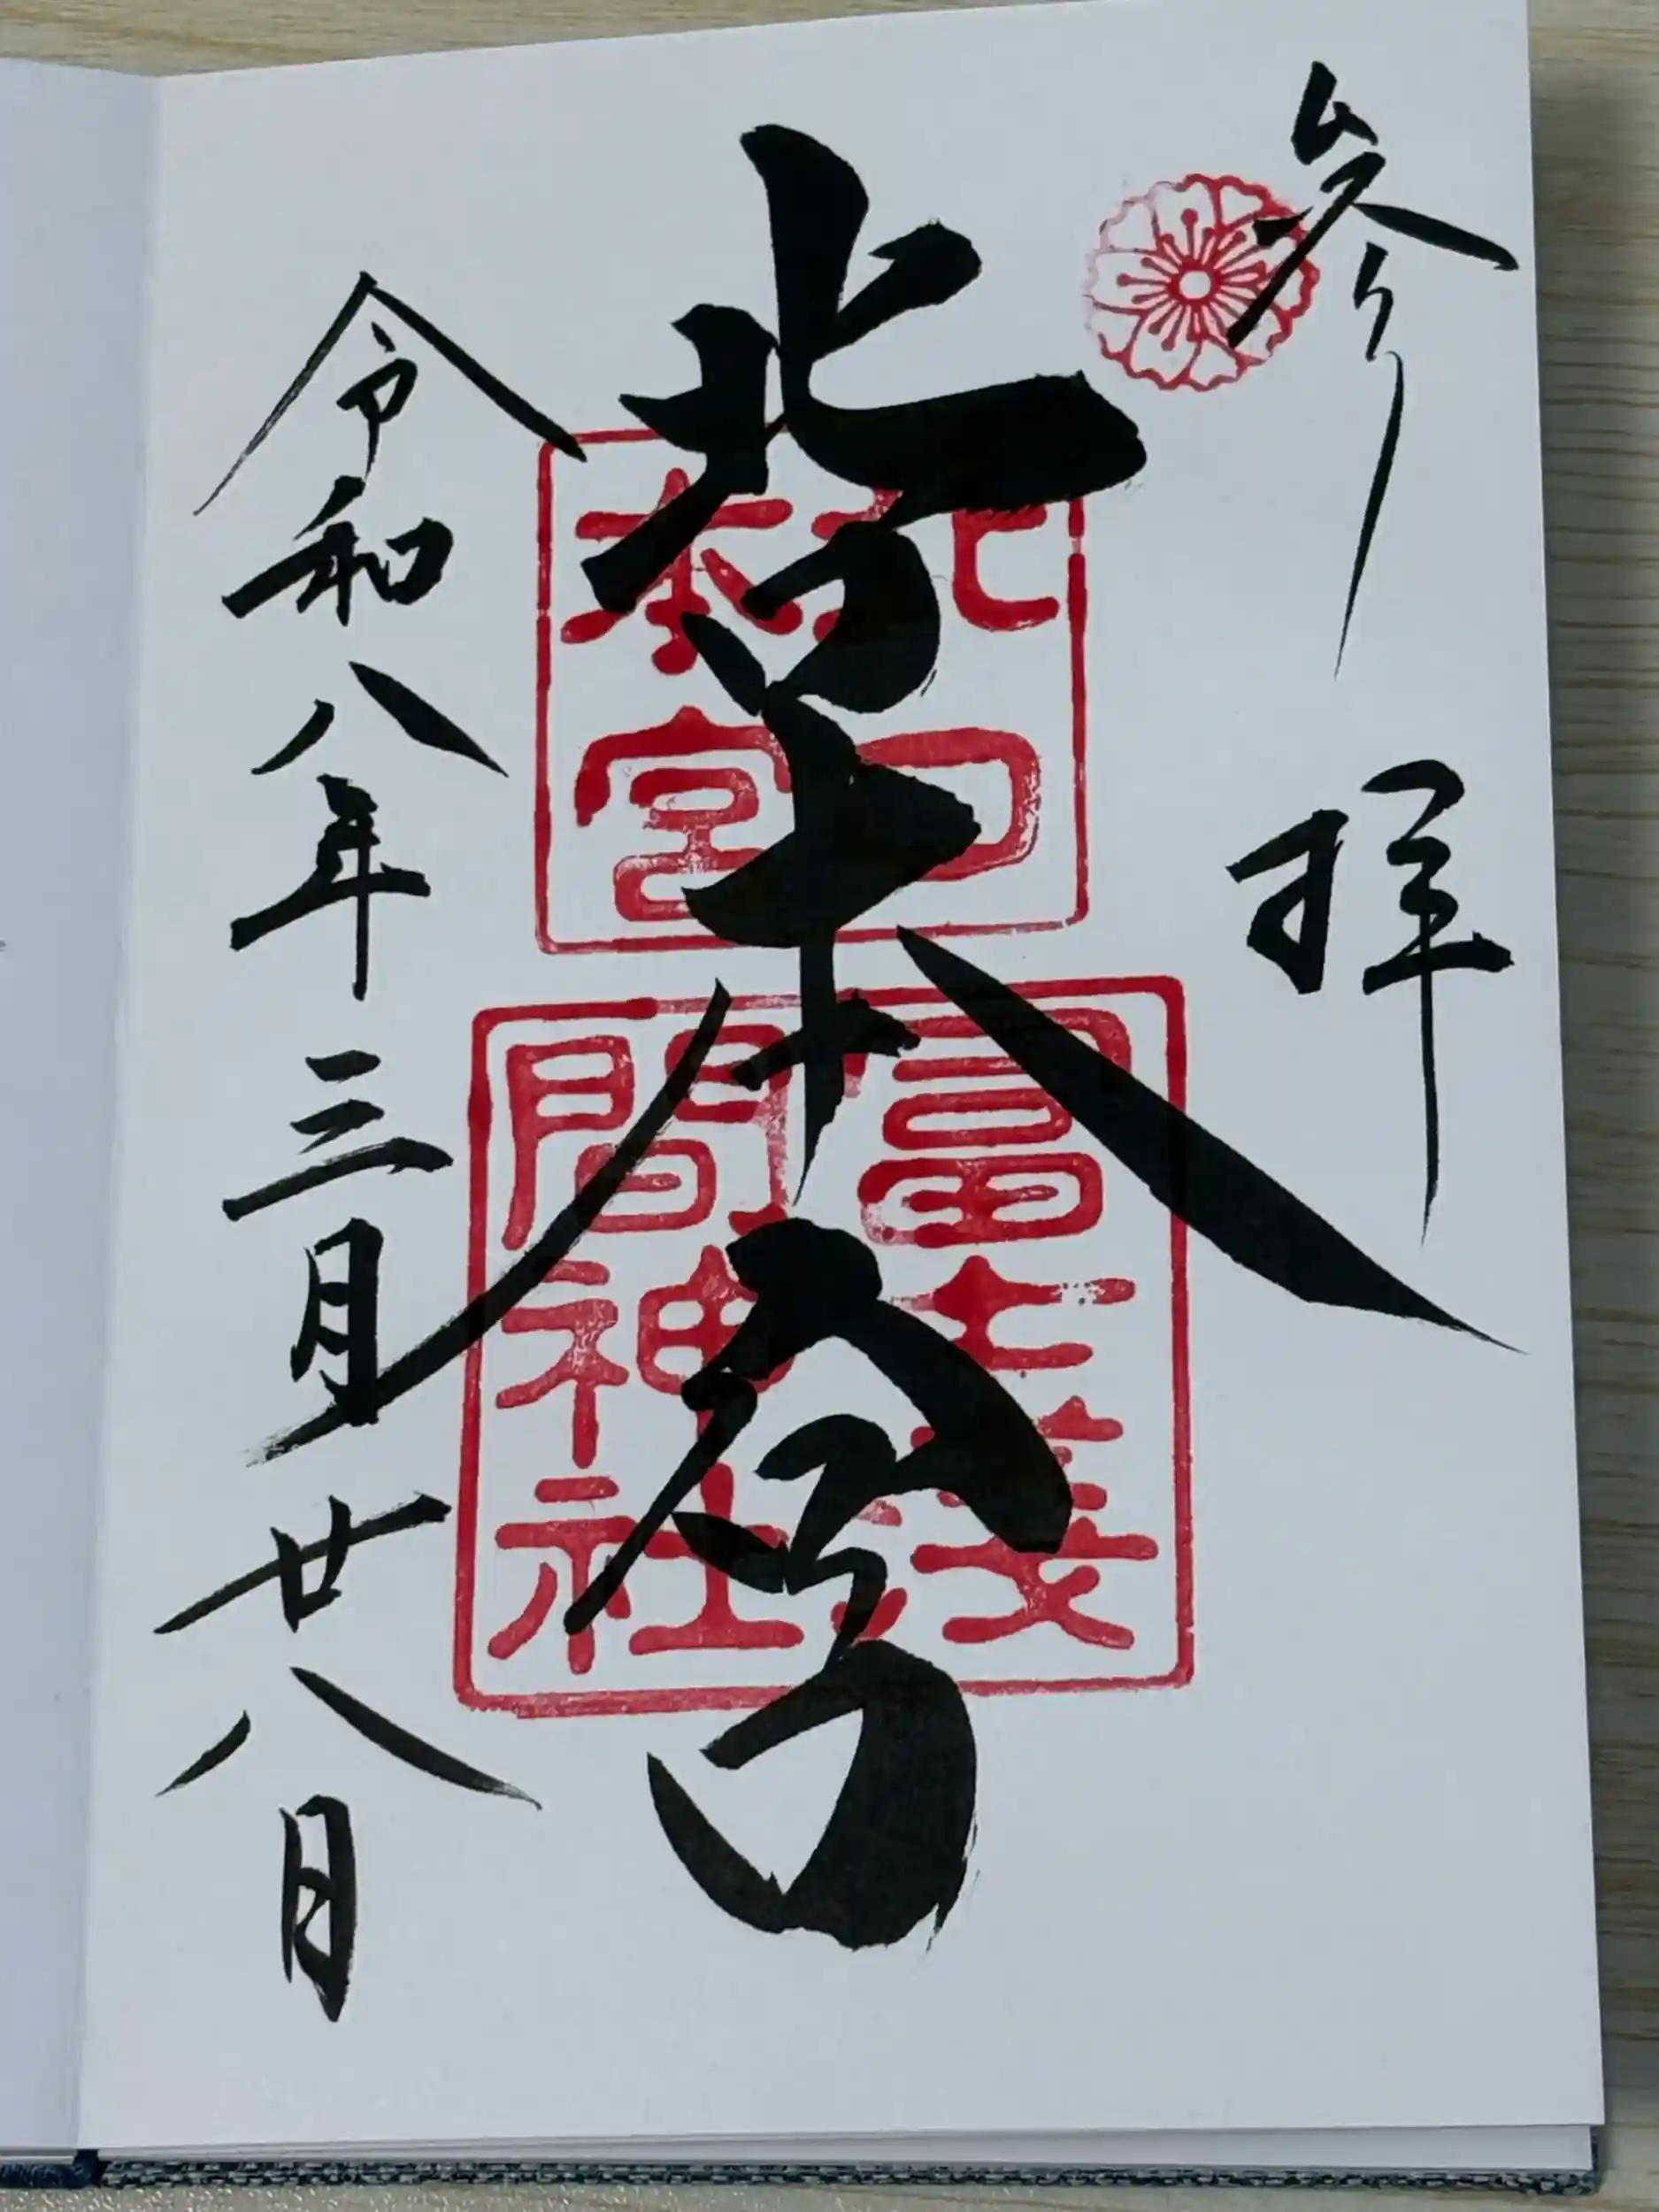 参拝
北口本宮
令和八年三月廿八日
北口
本宮
冨士淺
間神社